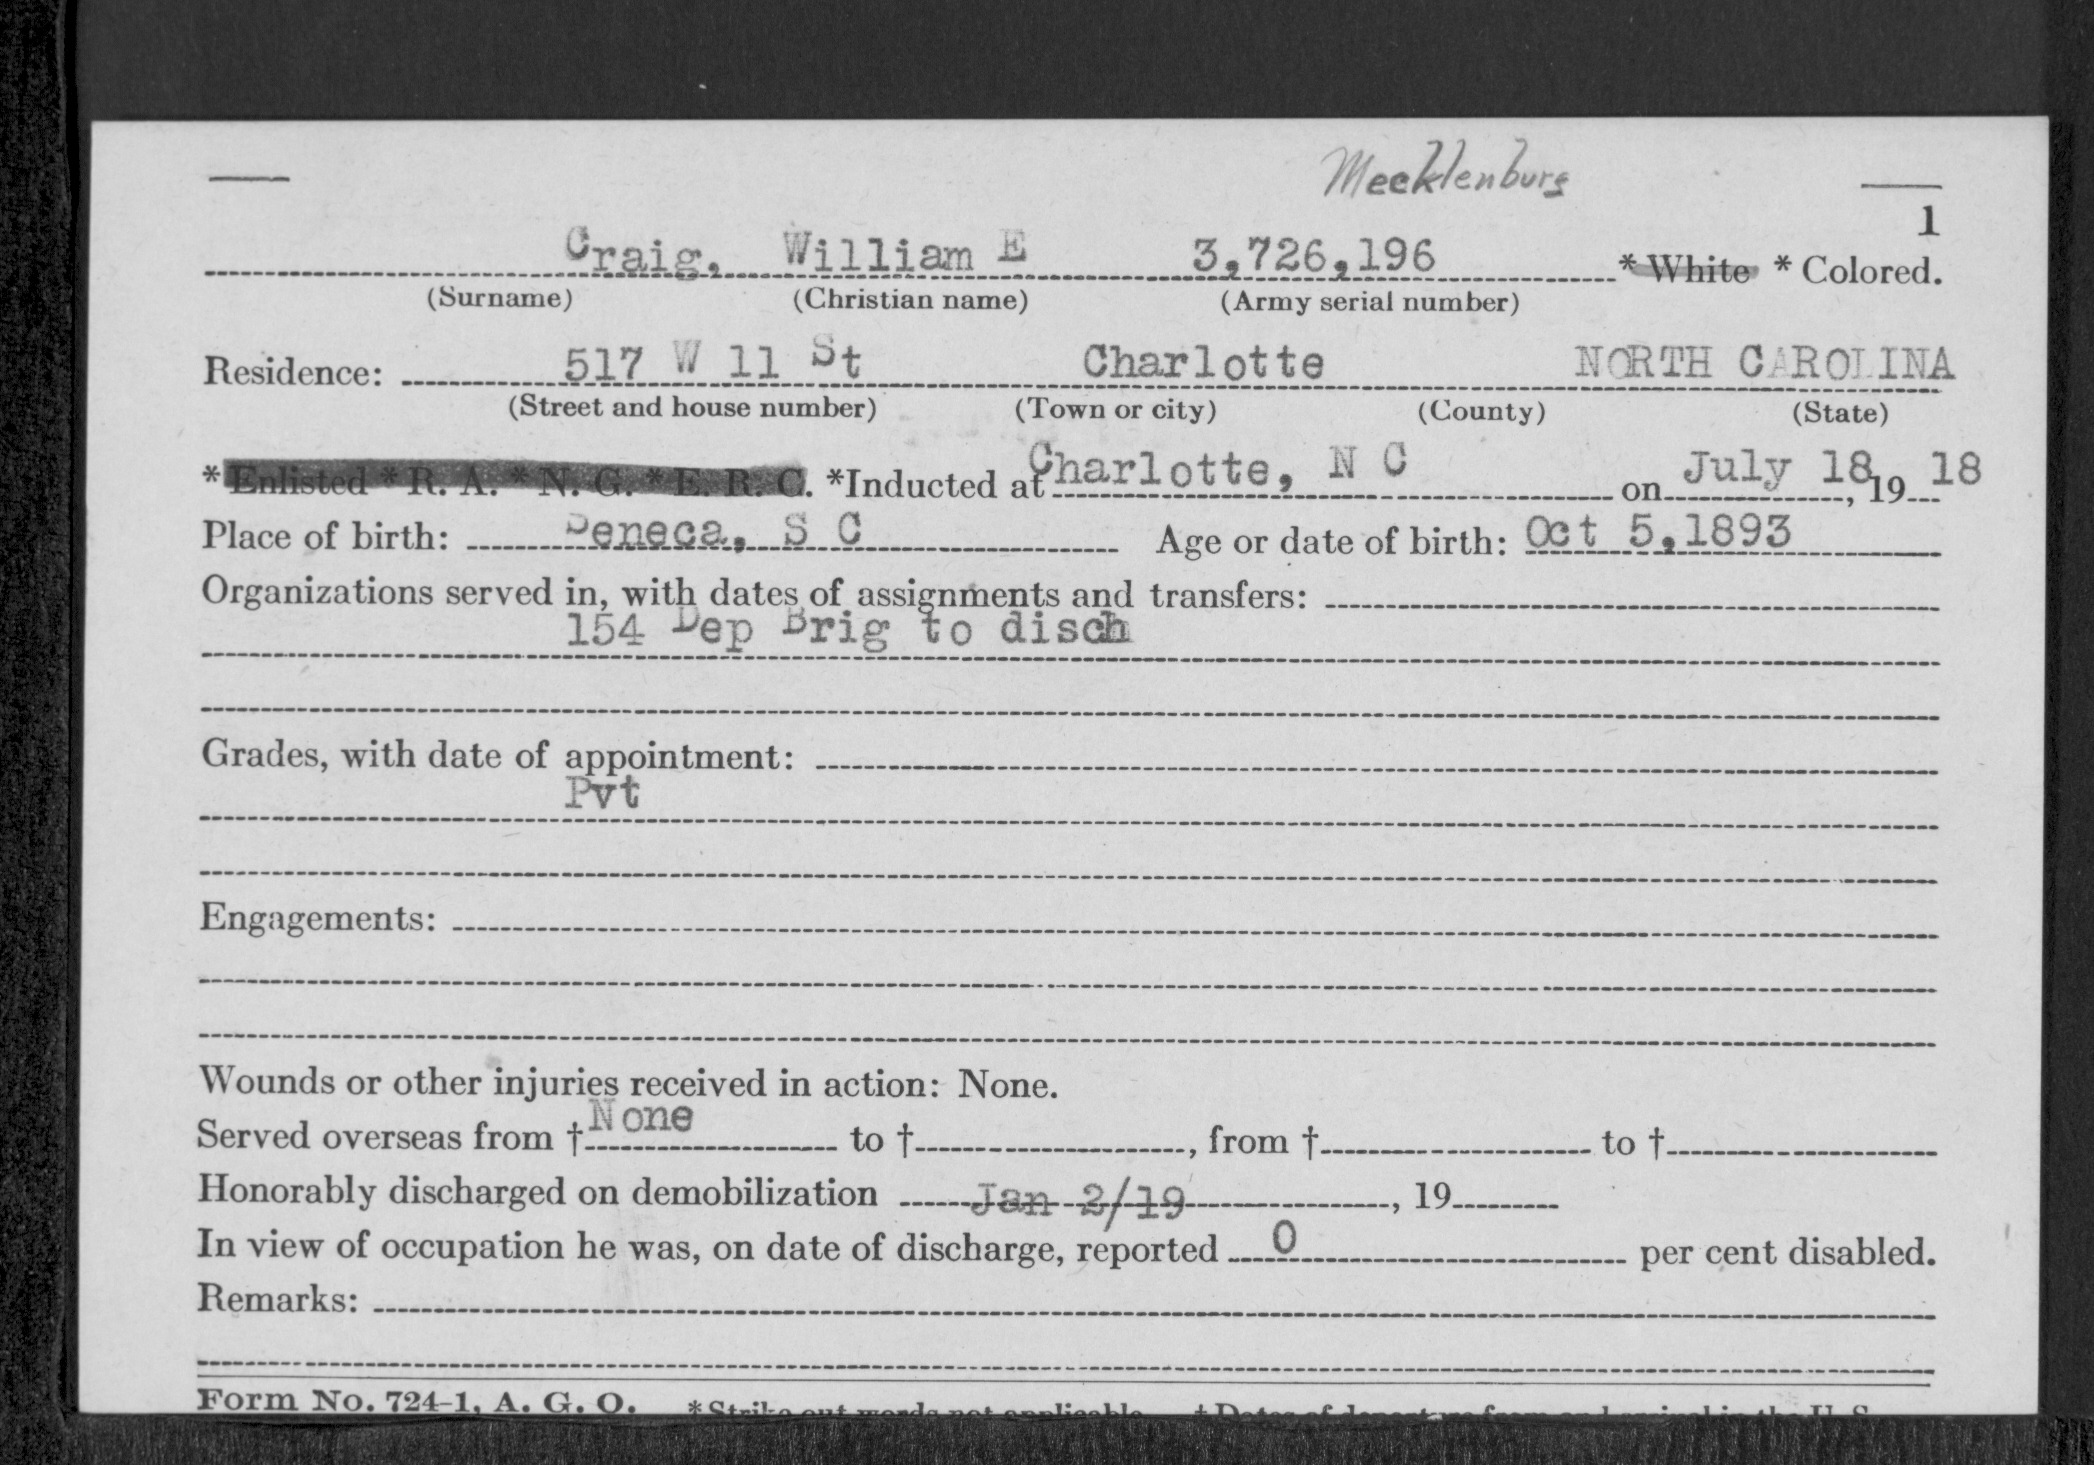 Mecklenburg
1
Craig, William E 3,726,196 * White * Colored.
(Surname) (Christian name) (Army serial number)
Residence: 517 W 11 St Charlotte NORTH CAROLINA
(Street and house number) (Town or city) (County) (State)
* Enlisted * R. A. * N. G. * E. R. C. *Inducted at Charlotte, N C on July 18, 19 18
Place of birth: Seneca, S C Age or date of birth: Oct 5,1893
Organizations served in, with dates of assignments and transfers:
154 Dep Brig to disch
Grades, with date of appointment:
Pvt
Engagements:
Wounds or other injuries received in action: None.
Served overseas from † None to † , from † to †
Honorably discharged on demobilization Jan 2/19 , 19
In view of occupation he was, on date of discharge, reported 0 per cent disabled.
Remarks:
Form No. 724-1, A. G. O. *Strike out words not applicable. †Dates of departure from and arrival in the U. S.